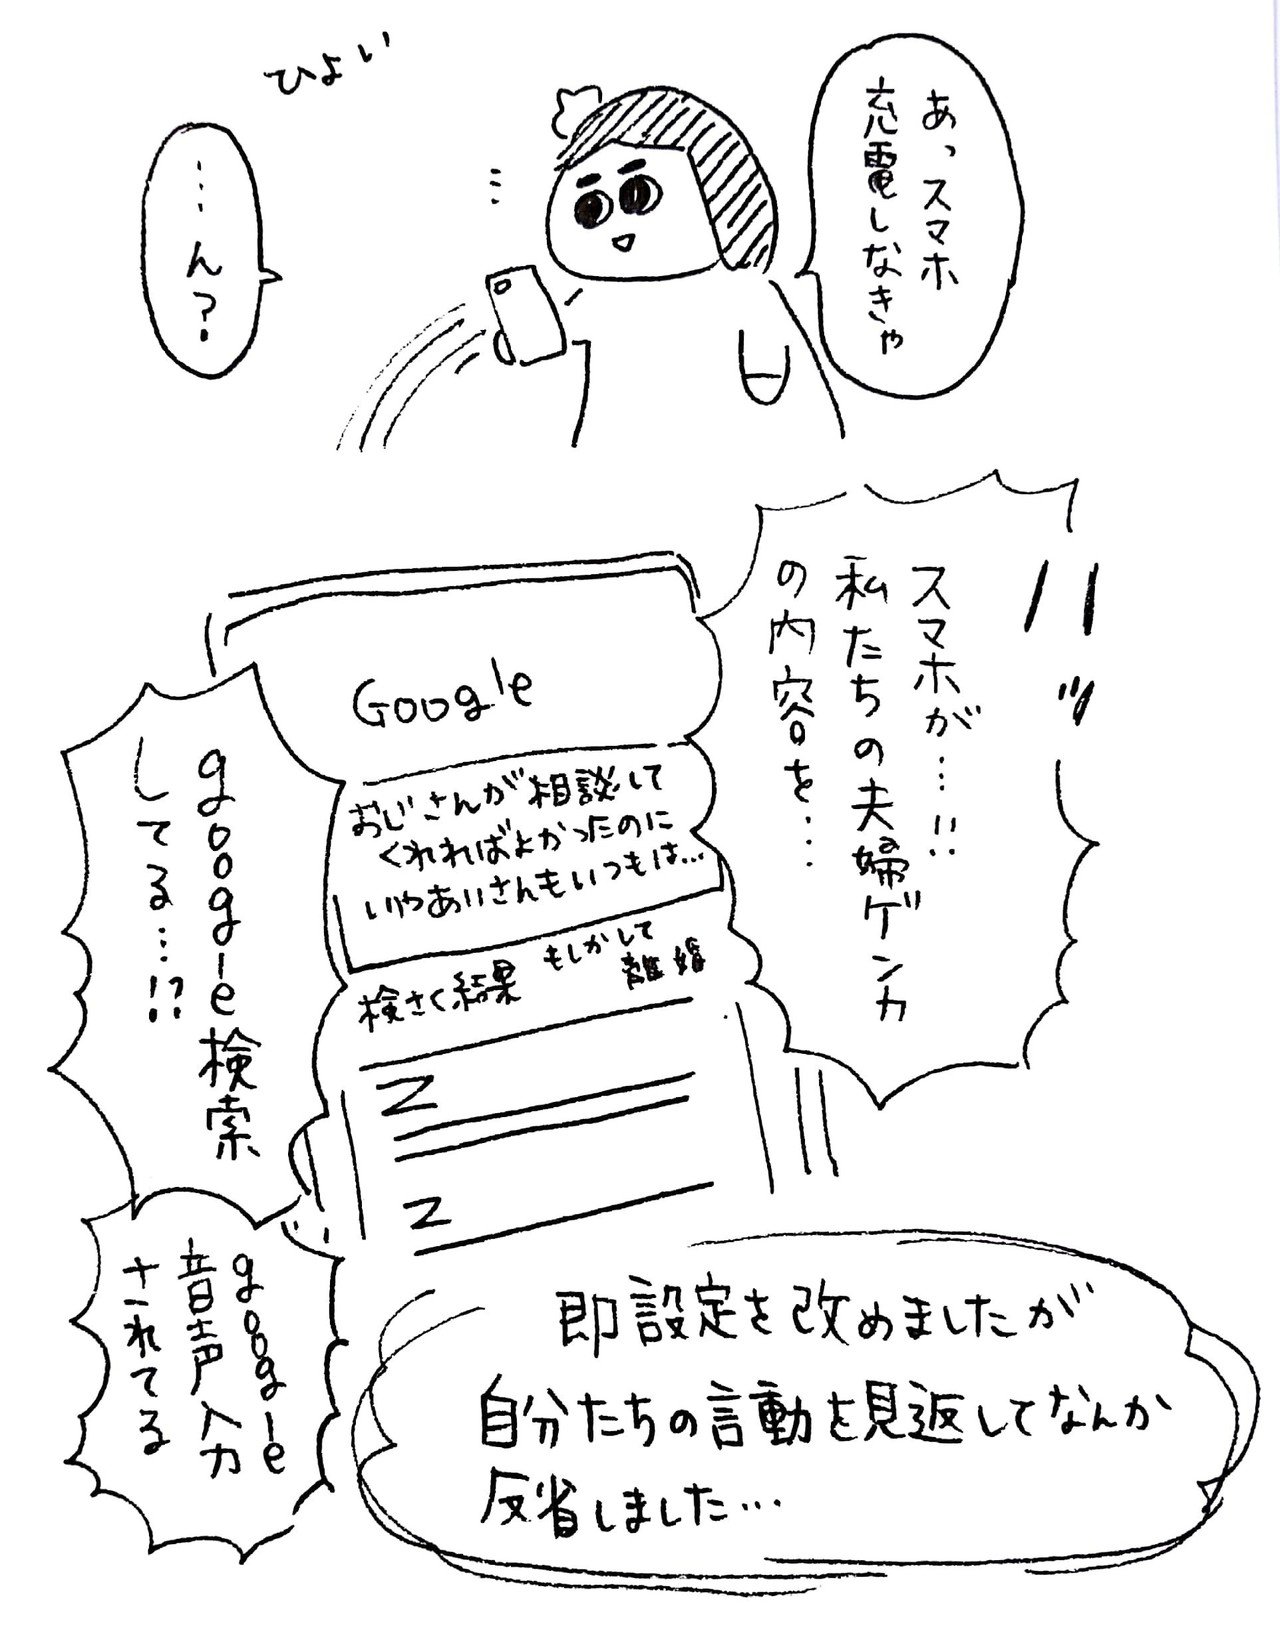 あっスマホ
充電しなきゃ
ひょい
…ん?
ハッ
スマホが…!!
私たちの夫婦ゲンカ
の内容を…
Google
おじさんが相談して
くれればよかったのに
いやあいさんもいつもは…
検さく結果 もしかして
離婚
google検索
してる…!?
google
音声入力
されてる
即設定を改めましたが
自分たちの言動を見返してなんか
反省しました…